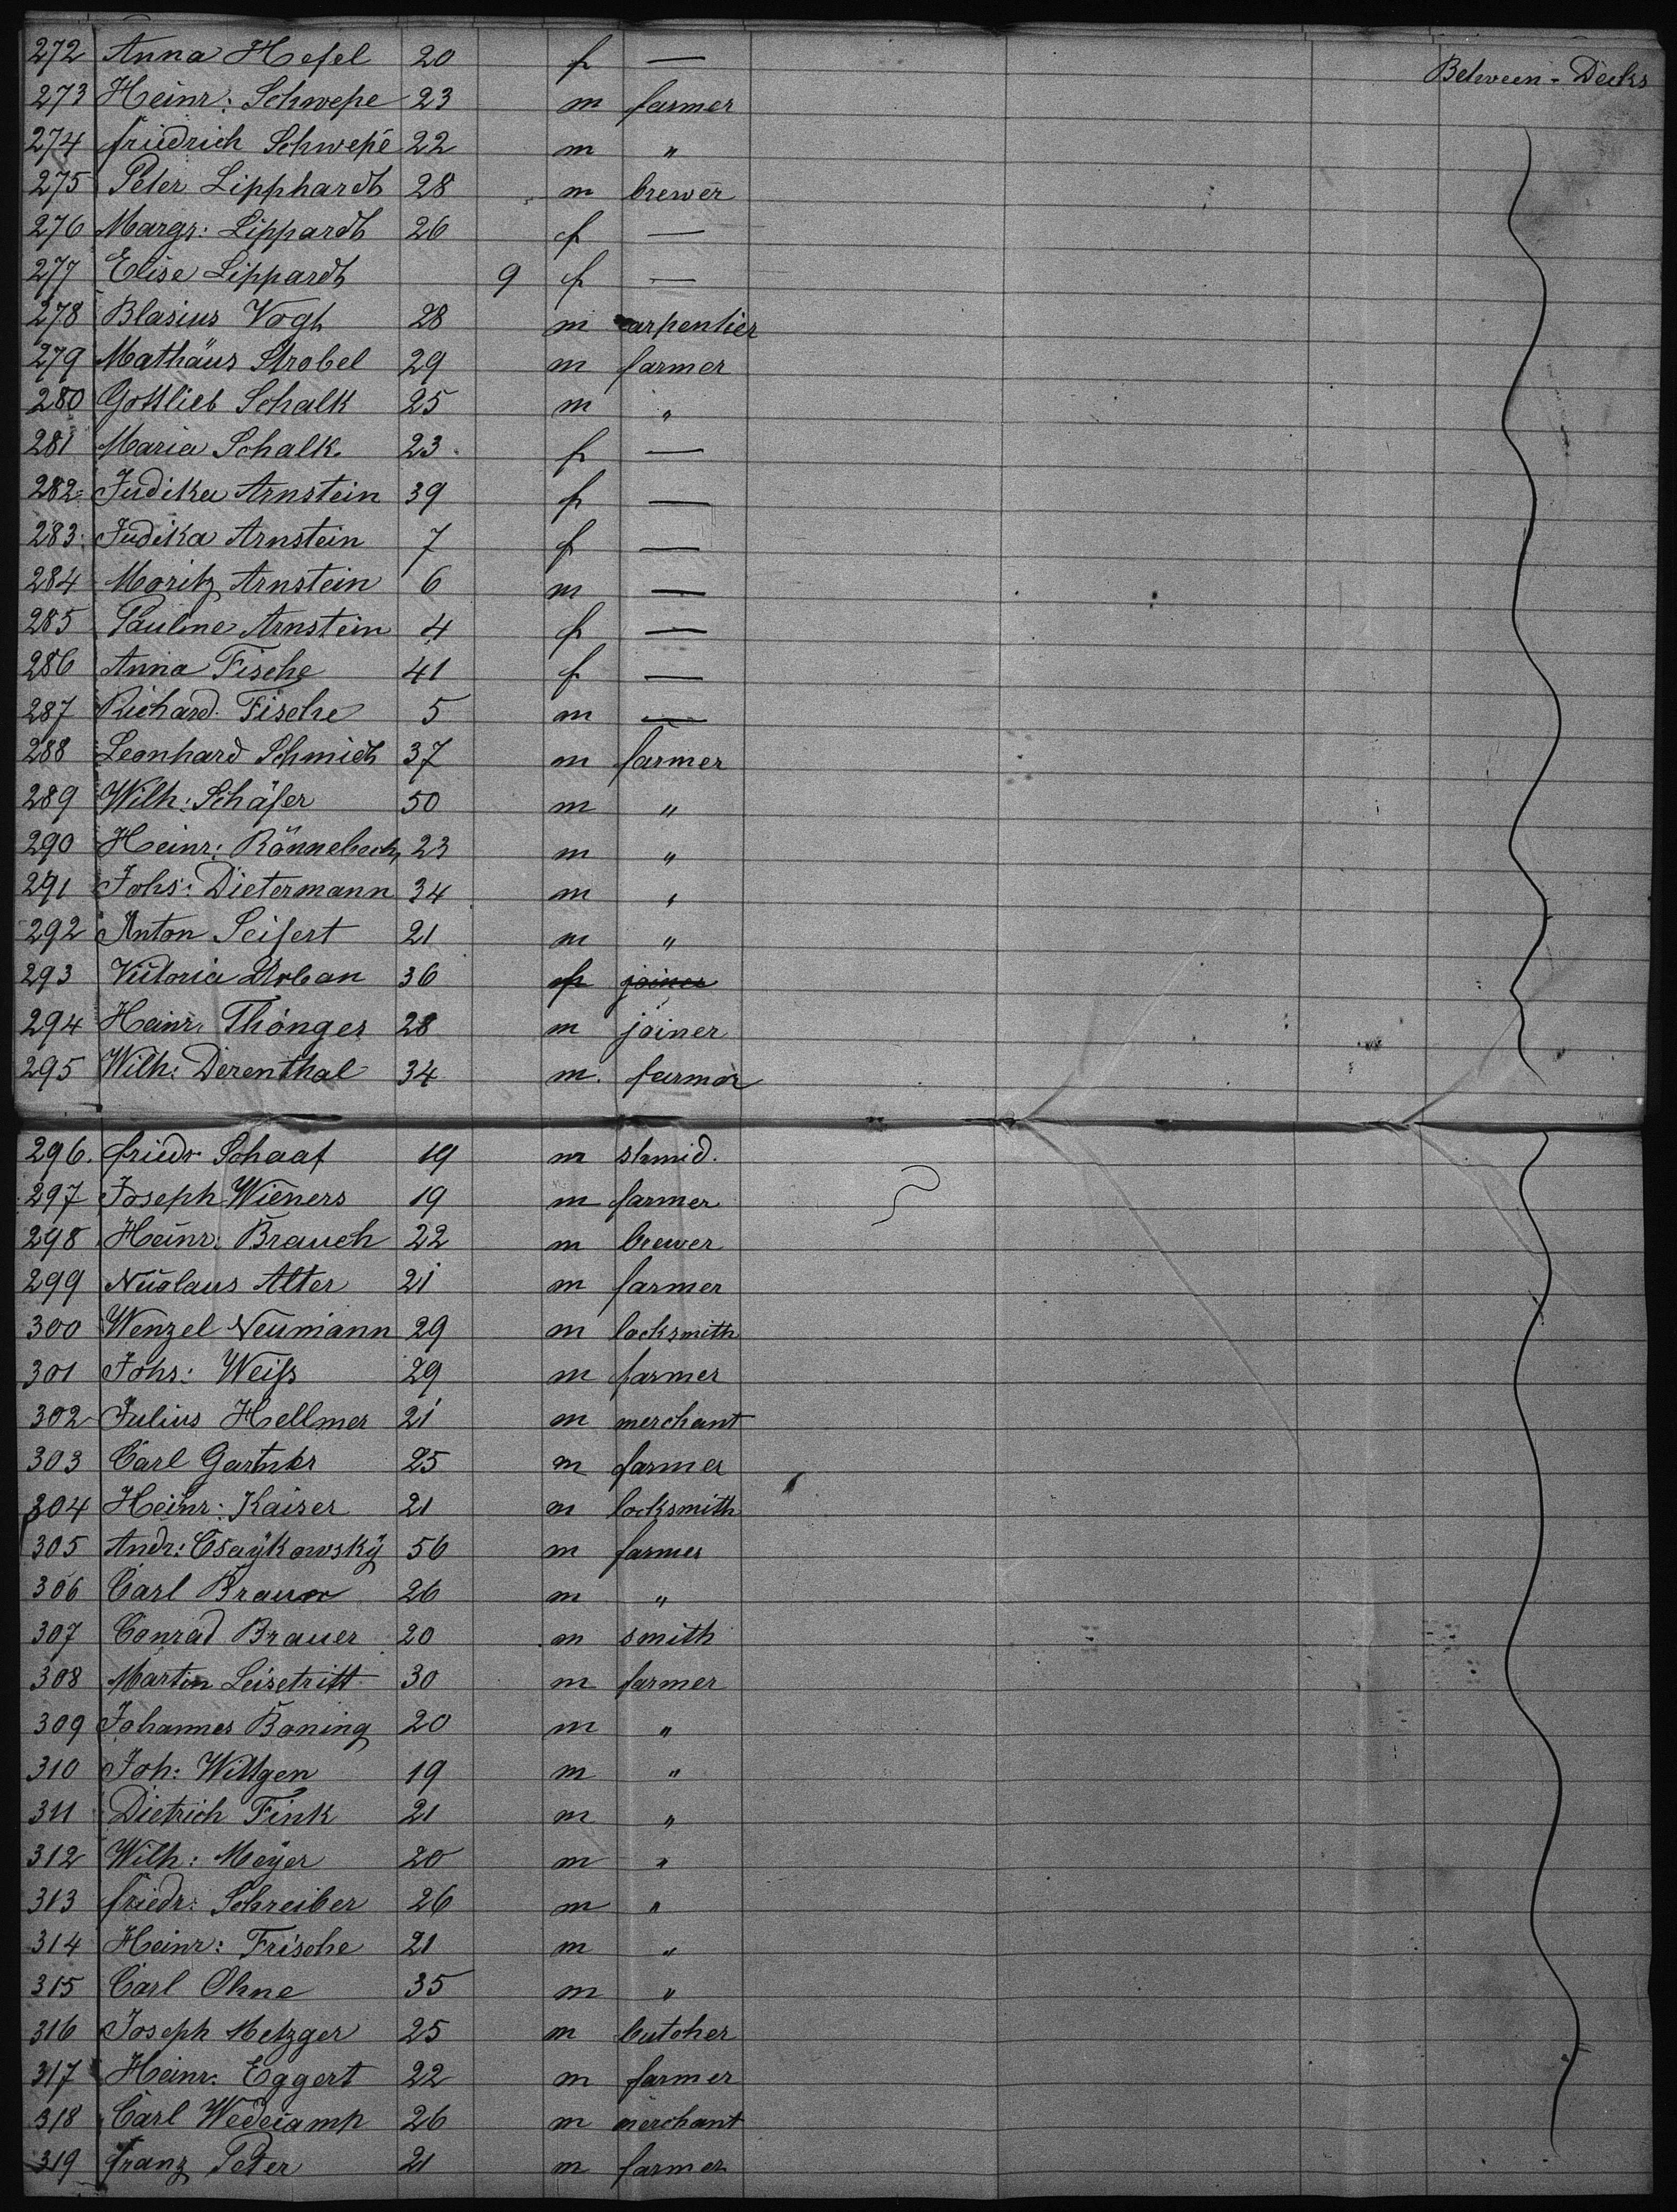 272 Anna Hesel 20 f — Between-Decks
273 Heinr: Schwepe 23 m farmer
274 friedrich Schwepe 22 m "
275 Peter Lipphardt 28 m brewer
276 Margr: Lippardt 26 f —
277 Elise Lippardt 9 f —
278 Blasius Vogt 28 m carpentier
279 Mathäus Strobel 29 m farmer
280 Gottlieb Schalk 25 m "
281 Maria Schalk 23 f —
282 Judika Arnstein 39 f —
283 Judika Arnstein 7 f —
284 Moritz Arnstein 6 m —
285 Pauline Arnstein 4 f —
286 Anna Fische 41 f —
287 Richard Fische 5 m —
288 Leonhard Schmidt 37 m farmer
289 Wilh: Schäfer 50 m "
290 Heinr: Rönnebeck 23 m "
291 Johs: Dietermann 34 m "
292 Anton Seifert 21 m "
293 Victoria 36 f joiner
294 Heinr: Thönges 28 m joiner
295 Wilh: Derenthal 34 m. farmer
296. friedr Schaaf 19 m
297 Joseph Wieners 19 m farmer
298 Heinr: Brauch 22 m brewer
299 Nicolaus Alter 21 m farmer
300 Wenzel Neumann 29 m locksmith
301 Johs: Weiss 29 m farmer
302 Julius Hellmer 21 m merchant
303 Carl 25 m farmer
304 Heinr: Kaiser 21 m locksmith
305 Andr: Csaykowsky 56 m farmer
306 Carl 26 m "
307 Conrad Brauer 20 m smith
308 Martin Leisetritt 30 m farmer
309 Johannes Boning 20 m "
310 Joh: Wittgen 19 m "
311 Dietrich Fink 21 m "
312 Wilh: Meyer 20 m "
313 friedr: Schreiber 26 m "
314 Heinr: Frische 21 m "
315 Carl Ohne 35 m "
316 Joseph Metzger 25 m butcher
317 Heinr: Eggert 22 m farmer
318 Carl 26 m merchant
319 franz Peter 21 m farmer